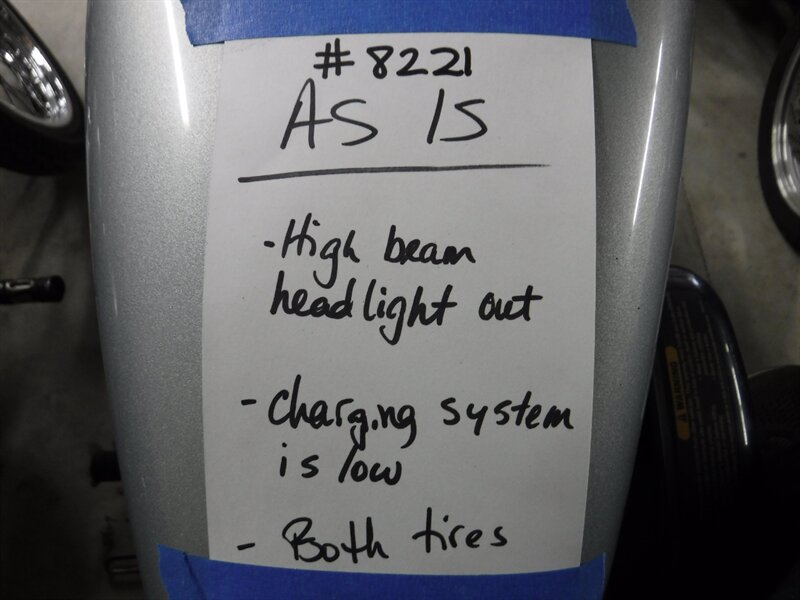 #8221
AS IS
- High beam
headlight out
- Charging system
is low
- Both tires
WARNING